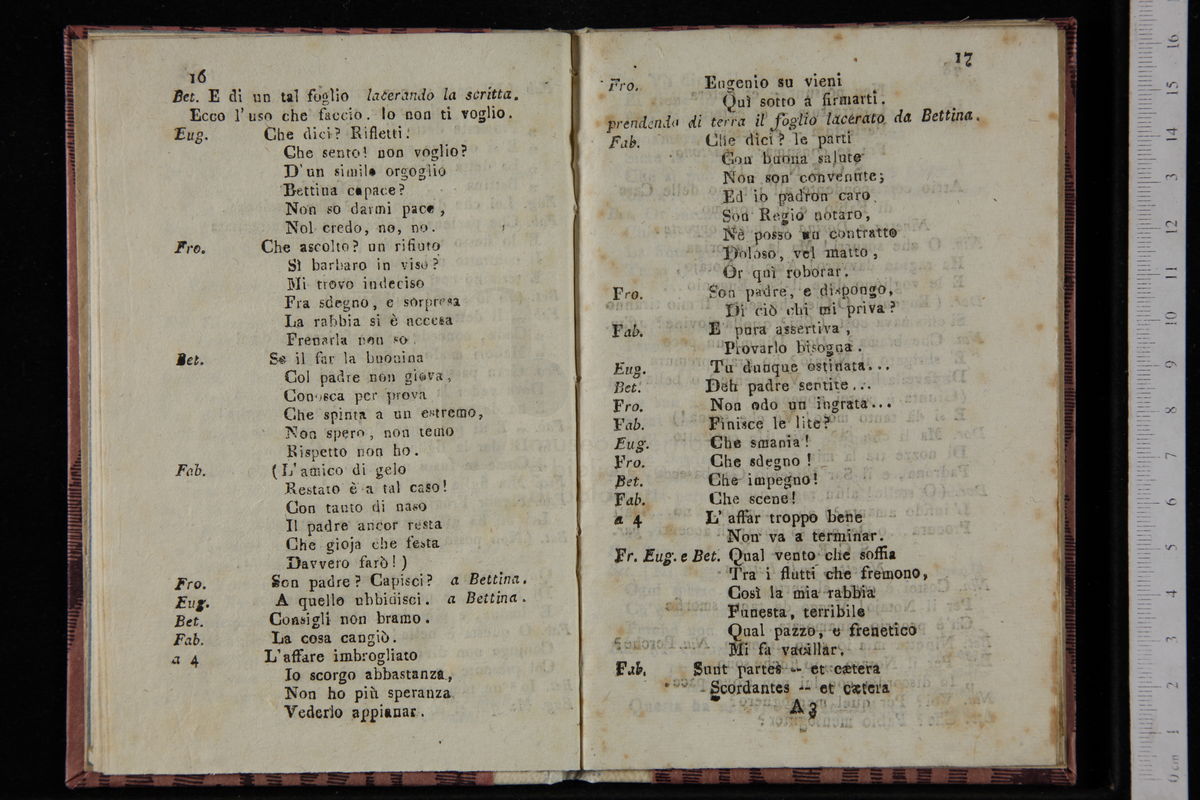 16
Bet. E di un tal foglio lacerando la scritta.
Ecco l'uso che faccio. Io non ti voglio.
Eug. Che dici? Rifletti:
Che sento! non voglio?
D'un simile orgoglio
Bettina capace?
Non so darmi pace,
Nol credo, no, no.
Fro. Che ascolto? un rifiuto
Sì barbaro in viso?
Mi trovo indeciso
Fra sdegno, e sorpresa
La rabbia si è accesa
Frenarla non so.
Bet. Se il far la buonina
Col padre non giova,
Conosca per prova
Che spinta a un estremo,
Non spero, non temo
Rispetto non ho.
Fab. (L'amico di gelo
Restato è a tal caso!
Con tanto di naso
Il padre ancor resta
Che gioja che festa
Davvero farò!)
Fro. Son padre? Capisci? a Bettina.
Eug. A quello ubbidisci. a Bettina.
Bet. Consigli non bramo.
Fab. La cosa cangiò.
a 4 L'affare imbrogliato
Io scorgo abbastanza,
Non ho più speranza
Vederlo appianar.
17
Fro. Eugenio su vieni
Quì sotto a firmarti.
prendendo di terra il foglio lacerato da Bettina.
Fab. Che dici? le parti
Con buona salute
Non son convenute;
Ed io padron caro
Son Regio notaro,
Nè posso un contratto
Doloso, vel matto,
Or quì roborar.
Fro. Son padre, e dispongo,
Di ciò chi mi priva?
Fab. E pura assertiva,
Provarlo bisogna.
Eug. Tu dunque ostinata...
Bet. Deh padre sentite...
Fro. Non odo un ingrata...
Fab. Finisce le lite?
Eug. Che smania!
Fro. Che sdegno!
Bet. Che impegno!
Fab. Che scene!
a 4 L'affar troppo bene
Non va a terminar.
Fr. Eug. e Bet. Qual vento che soffia
Tra i flutti che fremono,
Così la mia rabbia
Funesta, terribile
Qual pazzo, e frenetico
Mi fa vacillar.
Fab. Sunt partes -- et cætera
Scordantes -- et cætera
A 3